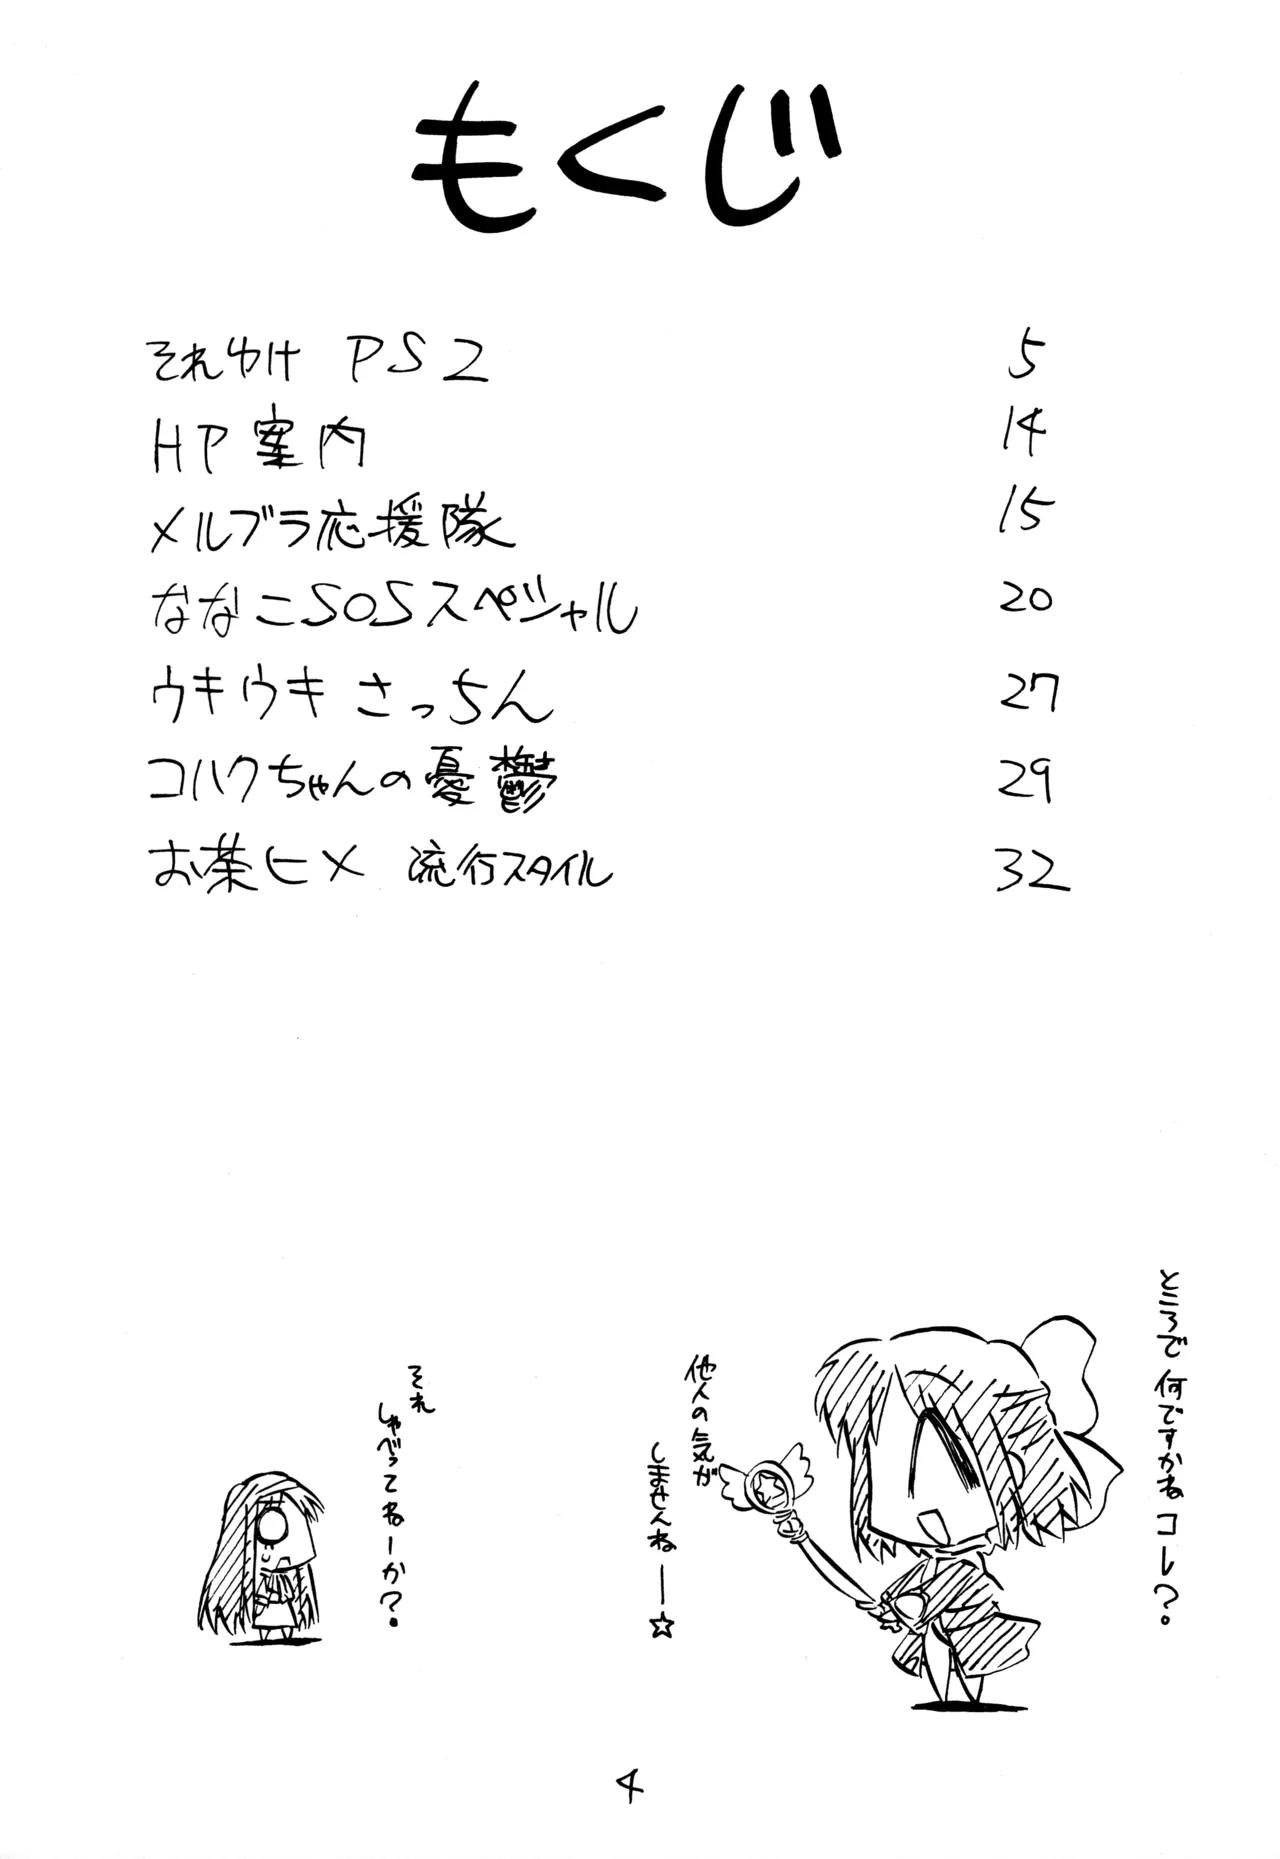 もくじ
それゆけ PS2 5
HP案内 14
メルブラ応援隊 15
ななこSOSスペシャル 20
ウキウキ さっちん 27
コハクちゃんの憂鬱 29
お茶ヒメ 流行スタイル 32
ところで何ですかねコレ?
他人の気が
しませんねー☆
それ
しゃべってねーか?
4